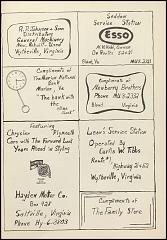 R. P. Johnson & Son
Distributors
General Machinery
New Rebuilt Used
Wytheville, Virginia
Seddon
Service Station
Esso
On Route 52 & 21
Bland, Va.
Compliments of
The Marion National
Bank
Marion, Va.
"The bank with the
clock"
Compliments of
Newberry Brothers
Phone MU 8-3331
Bland Virginia
Featuring
Chrysler Plymouth
Cars with The Forward Look
Years Ahead in Styling
Hayden Motor Co.
Box 928
Saltville, Virginia
Phone Hy-6-3803
Service Station
Operated by
Curtis W. Tibbs
Route #1
Highway 21 & 52
Wytheville, Virginia
Compliments of
The Family Store